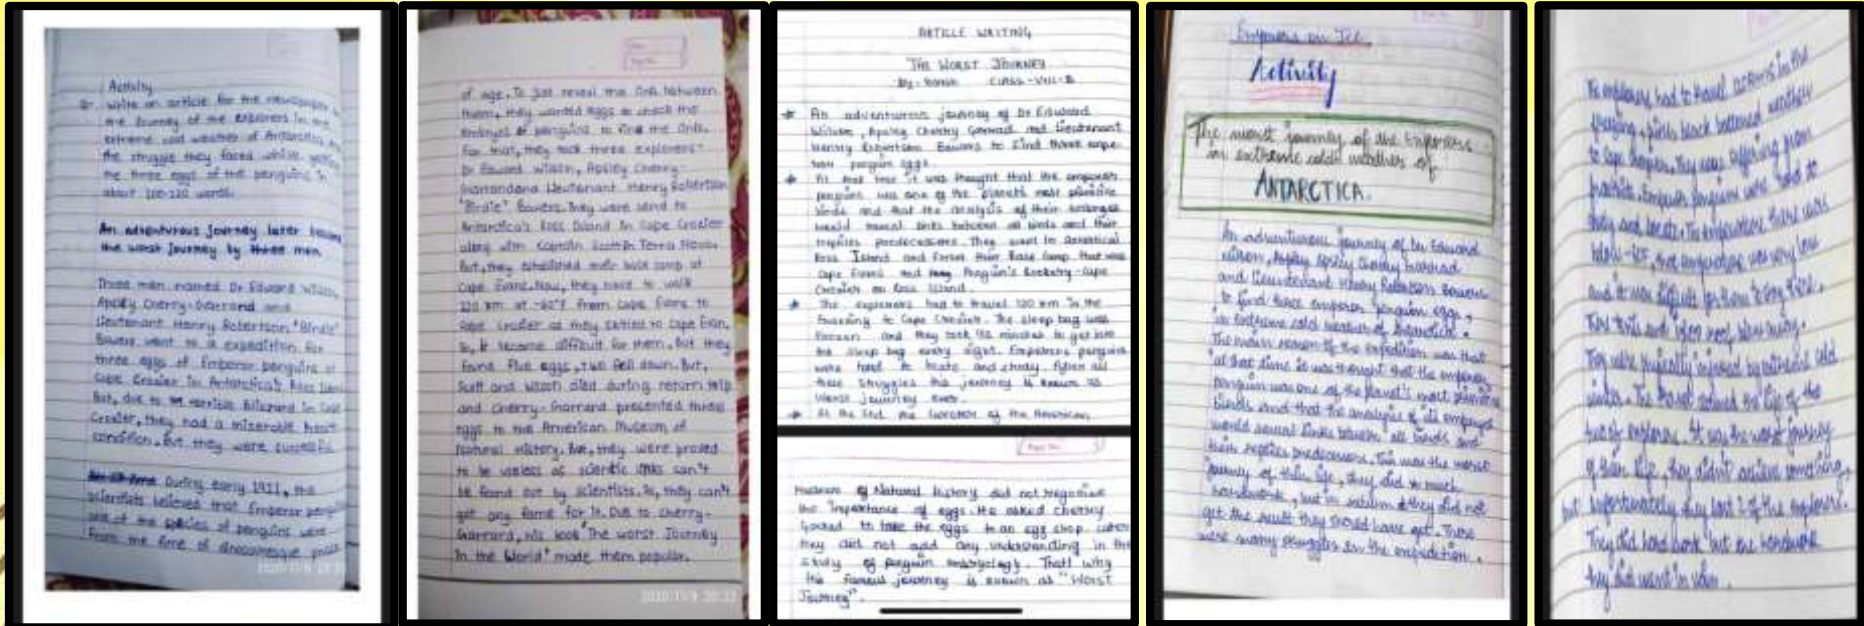 Activity
Q- Write an article for the newspaper
the Journey of the Explorers in the
extreme cold weather of Antarctica
the struggle they faced while
the three eggs of the penguins in
about 100-120 words.
An adventurous journey later became
the worst Journey by three men
Three men named Dr Edward Wilson,
Apsley Cherry-Garrard and
Lieutenant Henry Robertson "Birdie"
Bowers went to a expedition for
three eggs of Emperor penguins at
Cape Crozier in Antartatica's Ross
But, due to terrible Blizzard in Cape
Crozier, they had a miserable
condition. But they were successful
During early 1911, the
scientists believed that Emperor
one of the species of penguins were
from the time of
2020/11/9
of age. To just reveal the link between
them, they wanted eggs to check the
embryos of penguins to find the link.
For that, they took three explorers-
Dr Edward Wilson, Apsley Cherry-
Garrard and Lieutenant Henry Robertson
"Birdie" Bowers. They were send to
Antarctica's Ross Island in Cape Crozier
along with Captain Scott in Terra Nova.
But, they established their base camp at
Cape Evans. Now, they have to walk
120 km at -60°F from Cape Evans to
Cape Crozier as they settled to Cape Evan.
So, it became difficult for them. But they
found five eggs, two fell down. But,
Scott and Wilson died during return trip
and Cherry-Garrard presented three
eggs to the American Museum of
Natural History. But, they were proved
to be useless as scientific links can't
be found out by scientists. So, they can't
get any fame for it. Due to Cherry-
Garrard, his book "The worst Journey
In the World" made them popular.
2020/11/9 20:33
ARTICLE WRITING
THE WORST JOURNEY
By- CLASS-VIII-B
An adventurous journey of Dr Edward
Wilson, Apsley Cherry Garrard and Lieutenant
Henry Robertson Bowers to find three empe-
ror penguin eggs.
At that time it was thought that the emperor
penguin was one of the planet's most primitive
birds and that the analysis of their embryos
would reveal links between all birds and their
reptiles predecessors. They went to Antartical
Ross Island and forms their Base Camp that was
Cape Evans and Penguin's Rocketry-Cape
Crozier on Ross Island.
The explorers had to travel 120 km in the
freezing to Cape Crozier. The sleep bag was
frozen and they took 45 minutes to get into
the sleep bag every night. Emperors penguin
were hard to locate and study. After all
these struggles this journey is known as
worst journey ever.
At the End the Director of the American
Museum of Natural history did not recognise
the importance of eggs. He asked cherry
to take the eggs to an egg shop. where
they did not add any understanding in the
study of penguin embryology. That's why
this famous journey is known as "Worst
Journey".
Emperors on Ice
Activity
The worst journey of the Emperors
in extreme cold weather of
ANTARCTICA.
An adventurous journey of Dr Edward
wilson, Apsley Cherry Garrard
and Lieutenant Henry Robertson Bowers
to find three emperor penguin eggs,
in extreme cold weather of Antarctica.
The main reason of the expedition was that
at that time it was thought that the emperor
penguin was one of the planet's most primitive
birds and that the analysis of its embryos
would reveal links between all birds and
their reptiles predecessors. This was the worst
journey of their life, they did so much
hardwork, but in return they did not
get the result they should have got. There
were many struggles in the expedition.
The explorers had to travel in the
freezing, pitch black weather
to Cape Crozier. They was suffering from
frostbite. Emperor penguin were hard to
study and locate. The temperature there was
below -60F, the temperature was very low
and it was difficult for them to stay there.
Their tents and igloo roof blew away.
They were physically injured by extreme cold
winter. The travel ruined the life of the
two of explorers. It was the worst journey
of their life, they didn't achieve something,
but unfortunately they lost 2 of the explorers.
They did hard work but the hardwork
they did went in vain.